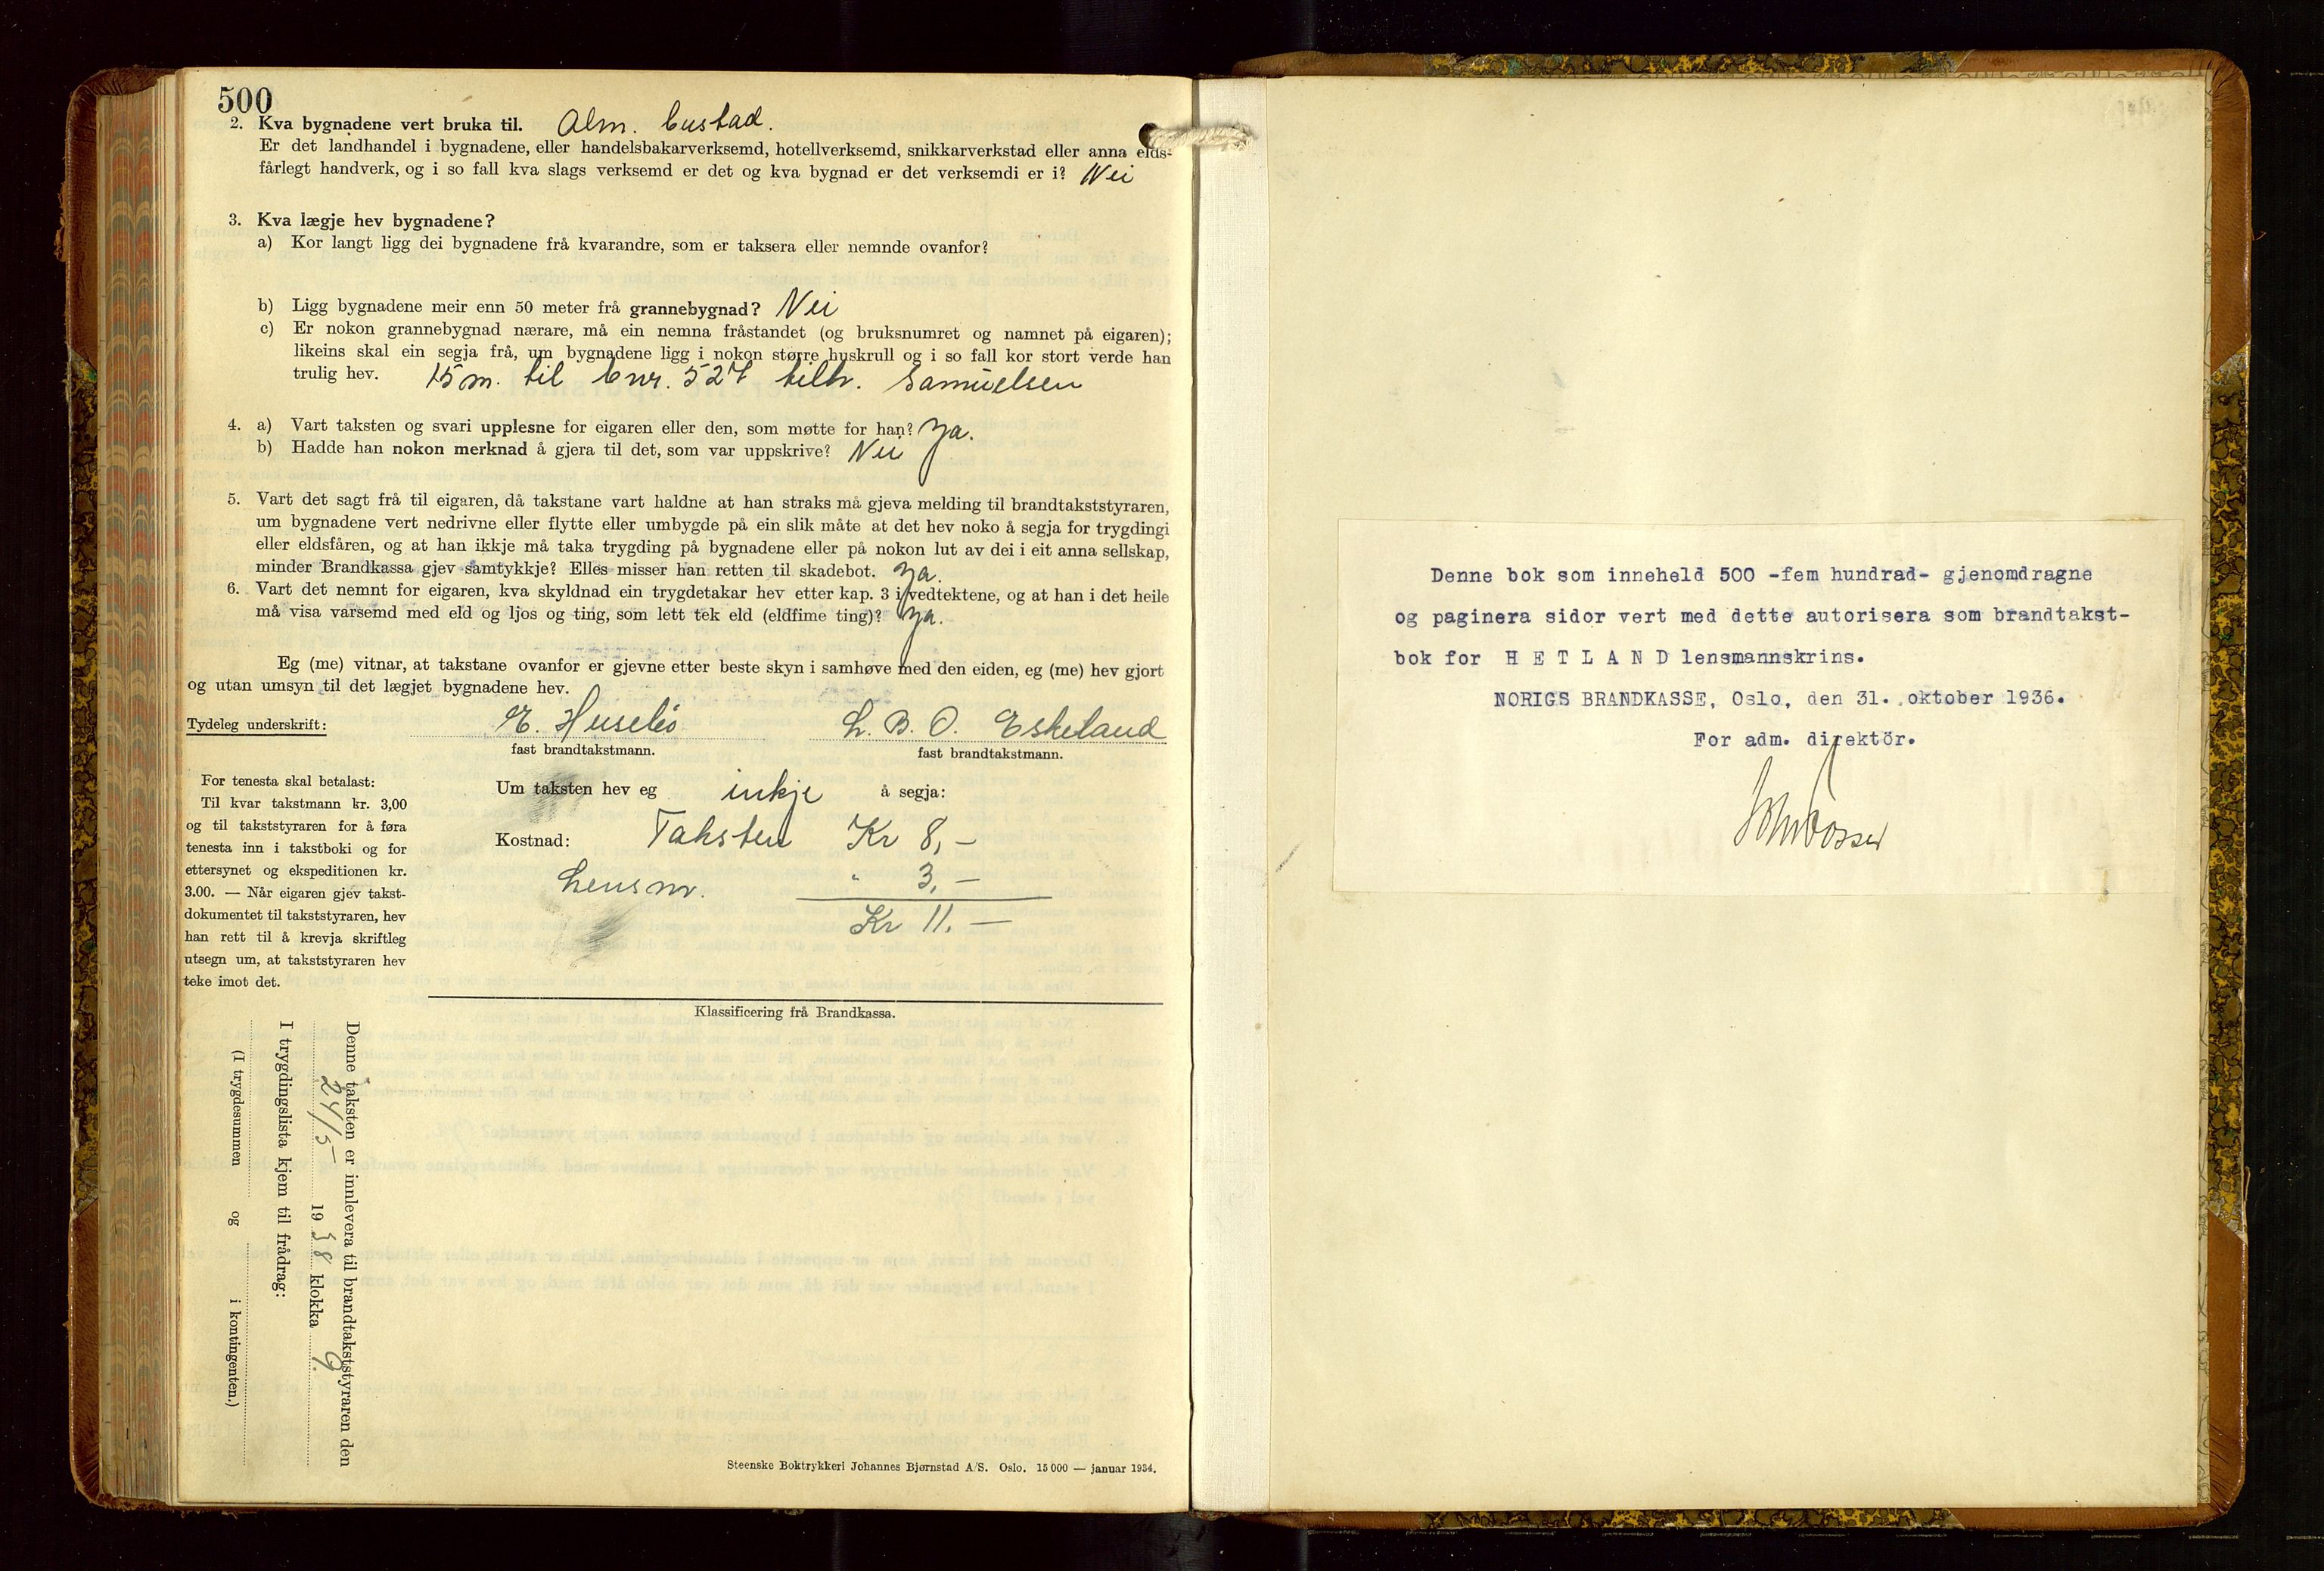 500
2. Kva bygnadene vert bruka til. Alm. bustad.
Er det landhandel i bygnadene, eller handelsbakarverksemd, hotellverksemd, snikkarverkstad eller anna elds-
fårlegt handverk, og i so fall kva slags verksemd er det og kva bygnad er det verksemdi er i? Nei
3. Kva lægje hev bygnadene?
a) Kor langt ligg dei bygnadene frå kvarandre, som er taksera eller nemnde ovanfor?
b) Ligg bygnadene meir enn 50 meter frå grannebygnad? Nei
c) Er nokon grannebygnad nærare, må ein nemna fråstandet (og bruksnumret og namnet på eigaren);
likeins skal ein segja frå, um bygnadene ligg i nokon større huskrull og i so fall kor stort verde han
trulig hev. 15 m. til bnr. 527 tilh. Samuelsen
4. a) Vart taksten og svari upplesne for eigaren eller den, som møtte for han? Ja.
b) Hadde han nokon merknad å gjera til det, som var uppskrive? Nei
5. Vart det sagt frå til eigaren, då takstane vart haldne at han straks må gjeva melding til brandtakststyraren,
um bygnadene vert nedrivne eller flytte eller umbygde på ein slik måte at det hev noko å segja for trygdingi
eller eldsfåren, og at han ikkje må taka trygding på bygnadene eller på nokon lut av dei i eit anna sellskap,
minder Brandkassa gjev samtykkje? Elles misser han retten til skadebot. Ja.
6. Vart det nemnt for eigaren, kva skyldnad ein trygdetakar hev etter kap. 3 i vedtektene, og at han i det heile
må visa varsemd med eld og ljos og ting, som lett tek eld (eldfime ting)? Ja.
Eg (me) vitnar, at takstane ovanfor er gjevne etter beste skyn i samhøve med den eiden, eg (me) hev gjort
og utan umsyn til det lægjet bygnadene hev.
Tydeleg underskrift: E. Husebø L. B. O. Eskeland
fast brandtakstmann. fast brandtakstmann.
For tenesta skal betalast:
Til kvar takstmann kr. 3,00
og til takststyraren for å føra
tenesta inn i takstboki og for
ettersynet og ekspeditionen kr.
3.00. — Når eigaren gjev takst-
dokumentet til takststyraren, hev
han rett til å krevja skriftleg
utsegn um, at takststyraren hev
teke imot det.
Um taksten hev eg inkje å segja:
Kostnad: Taksten Kr 8,—
Lensm. " 3,—
Kr 11.—
Klassificering frå Brandkassa.
Denne taksten er innlevera til brandtakststyraren den
24/5— 1938 klokka 9.
I trygdingslista kjem til frådrag:
(I trygdesummen og i kontingenten.)
Steenske Boktrykkeri Johannes Bjørnstad A/S. Oslo. 15 000 — januar 1934.
Denne bok som inneheld 500 -fem hundrad- gjenomdragne
og paginera sidor vert med dette autorisera som brandtakst-
bok for H E T L A N D lensmannskrins.
NORIGS BRANDKASSE, Oslo, den 31. oktober 1936.
For adm. direktör.